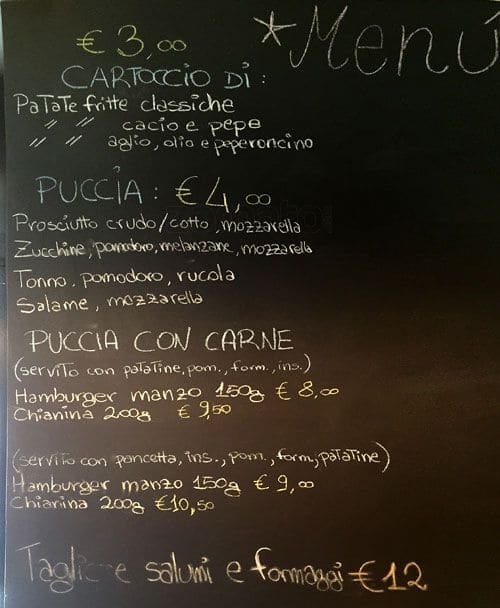 *Menú
€ 3,00
CARTOCCIO DI:
Patate fritte classiche
" " cacio e pepe
" " aglio, olio e peperoncino
PUCCIA: € 4,00
Prosciutto crudo/cotto, mozzarella
Zucchine, pomodoro, melanzane, mozzarella
Tonno, pomodoro, rucola
Salame, mozzarella
PUCCIA CON CARNE
(servito con patatine, pom., form., ins.)
Hamburger manzo 150g € 8,00
Chianina 200g € 9,50
(servito con pancetta, ins., pom., form., patatine)
Hamburger manzo 150g € 9,00
Chianina 200g €10,50
Tagliere salumi e formaggi €12